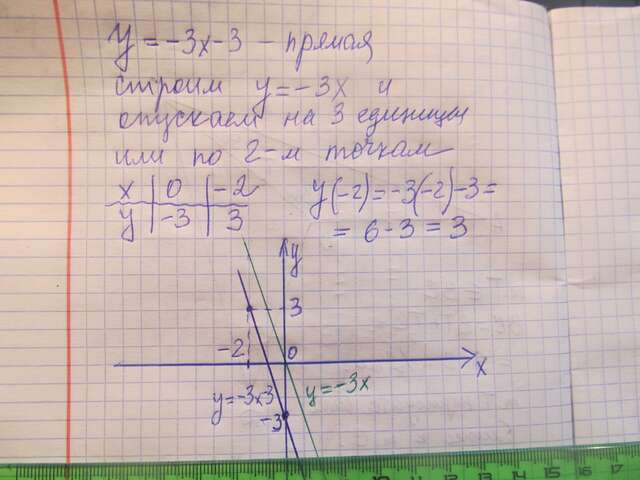 y = -3x - 3 - прямая
строим y = -3x и
опускаем на 3 единицы
или по 2-м точкам
x | 0 | -2
y | -3 | 3
y(-2) = -3(-2) - 3 =
= 6 - 3 = 3
y
3
-2
0
x
y = -3x-3
y = -3x
-3
10 11 12 13 14 15 16 17